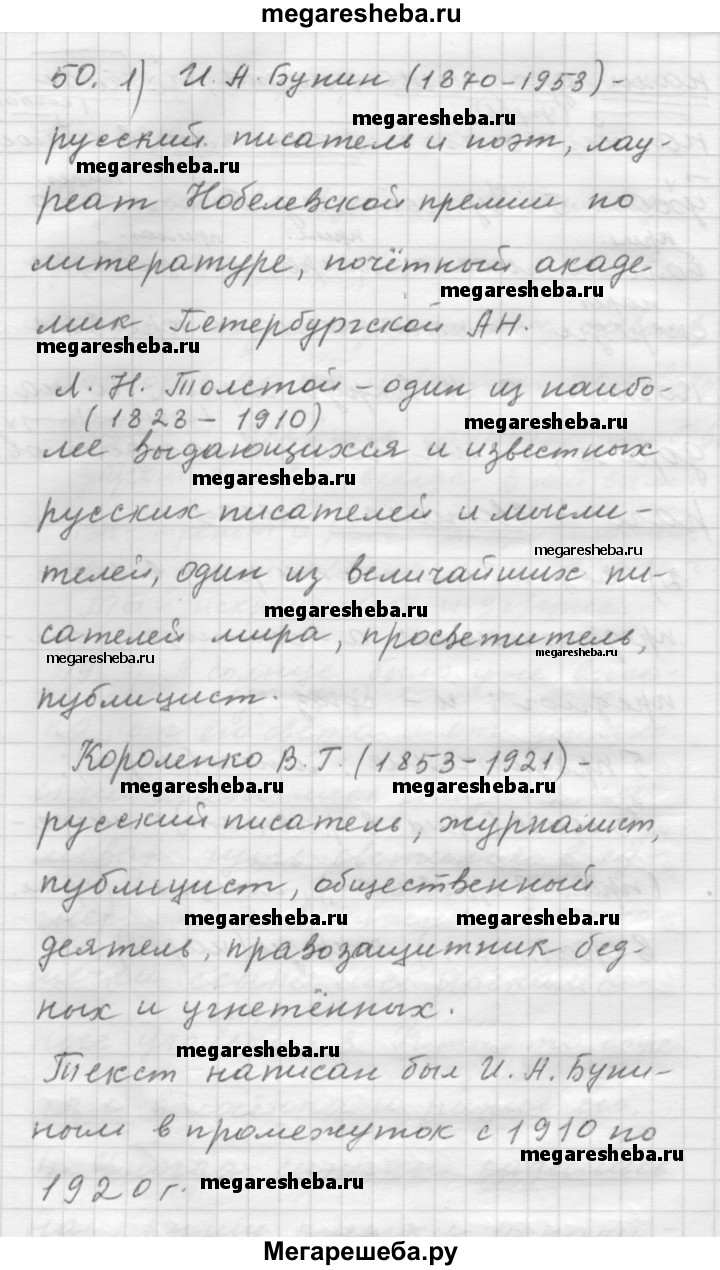 megaresheba.ru
50. 1) И. А. Бунин (1870-1953) -
megaresheba.ru
русский писатель и поэт, лау-
megaresheba.ru
реат Нобелевской премии по
литературе, почётный акаде
megaresheba.ru
мик Петербургской АН.
megaresheba.ru
Л. Н. Толстой - один из наибо-
(1828 - 1910)
megaresheba.ru
лее выдающихся и известных
megaresheba.ru
русских писателей и мысли-
megaresheba.ru
телей, один из величайших пи-
megaresheba.ru
сателей мира, просветитель,
megaresheba.ru
megaresheba.ru
публицист.
Короленко В. Г. (1853-1921) -
megaresheba.ru megaresheba.ru
русский писатель, журналист,
публицист, общественный
megaresheba.ru megaresheba.ru
деятель, правозащитник бед-
ных и угнетённых.
megaresheba.ru
Текст написан был И. А. Буни-
ным в промежуток с 1910 по
megaresheba.ru
1920 г.
megaresheba.ru
Мегарешеба.ру